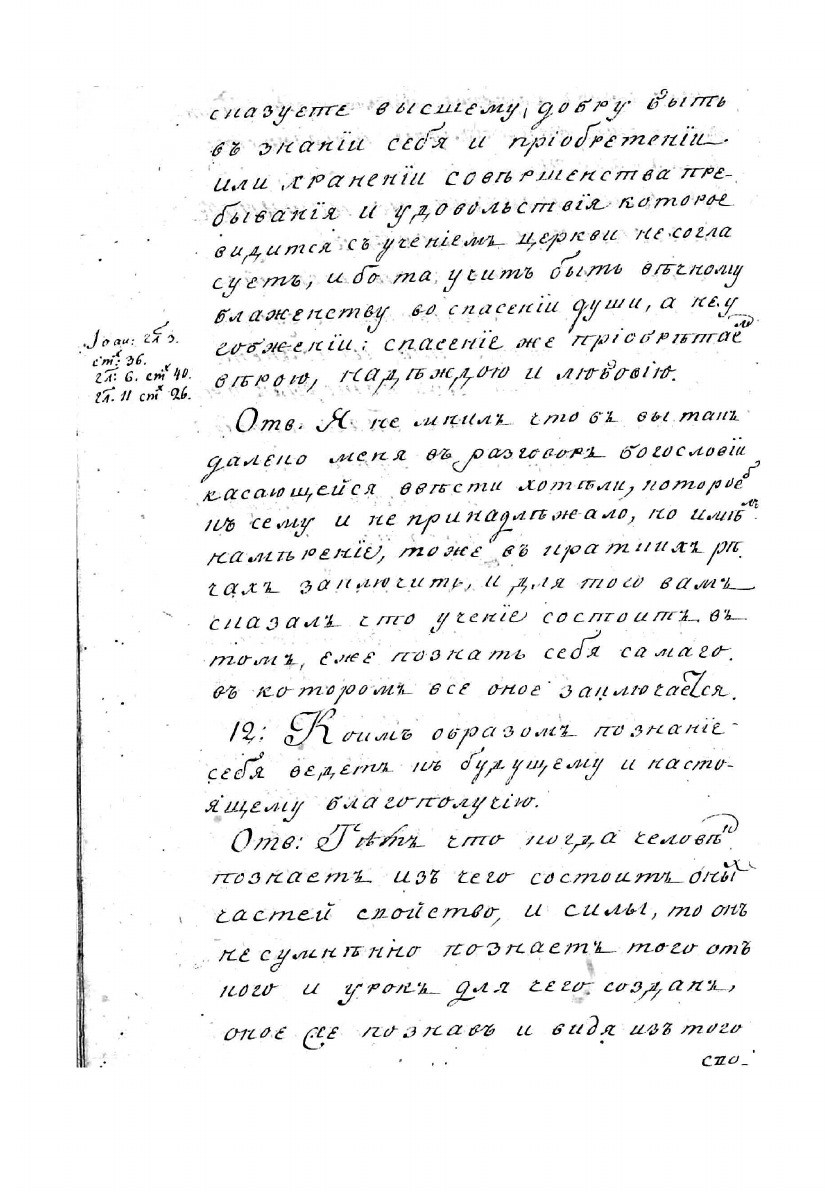 сказуете высшему, добру быть
въ знанїи себя и прїобретенїи
или храненїи совѣршенства пре-
быванїя и удовольствїя которое
видится съ ученїемъ церкви несогла
суетъ, ибо та учитъ быть вѣчному
блаженству во спасенїи души, а неу
гобженїи: спасенїе же прїобрѣтае
вѣрою, надѣждою и любовїю.
Іоан: гл 3.
стх: 36.
гл: 6. стх 40.
гл. 11 стх 26.
Отв. Я не мнилъ чтобъ вы такъ
далено меня въ разговоръ богословїи
касающейся ввѣсти хотѣли, которое
къ сему и не принадлѣжало, но имѣлъ
намѣренїе, тоже въ краткихъ рѣ
чахъ заключить, и для того вамъ
сказалъ что ученїе состоитъ въ
томъ, еже познать себя самаго
въ которомъ все оное заключается.
12: Коимъ образомъ познанїе
себя ведетъ къ будущему и насто-
ящему благополучїю.
Отв: что когда человѣкъ
познаетъ изъ чего состоитъ оныхъ
частей свойство, и силы, то онъ
несумнѣнно познаетъ того отъ
кого и урокъ для чего созданъ,
оное же познавъ и видя изъ того
спо-